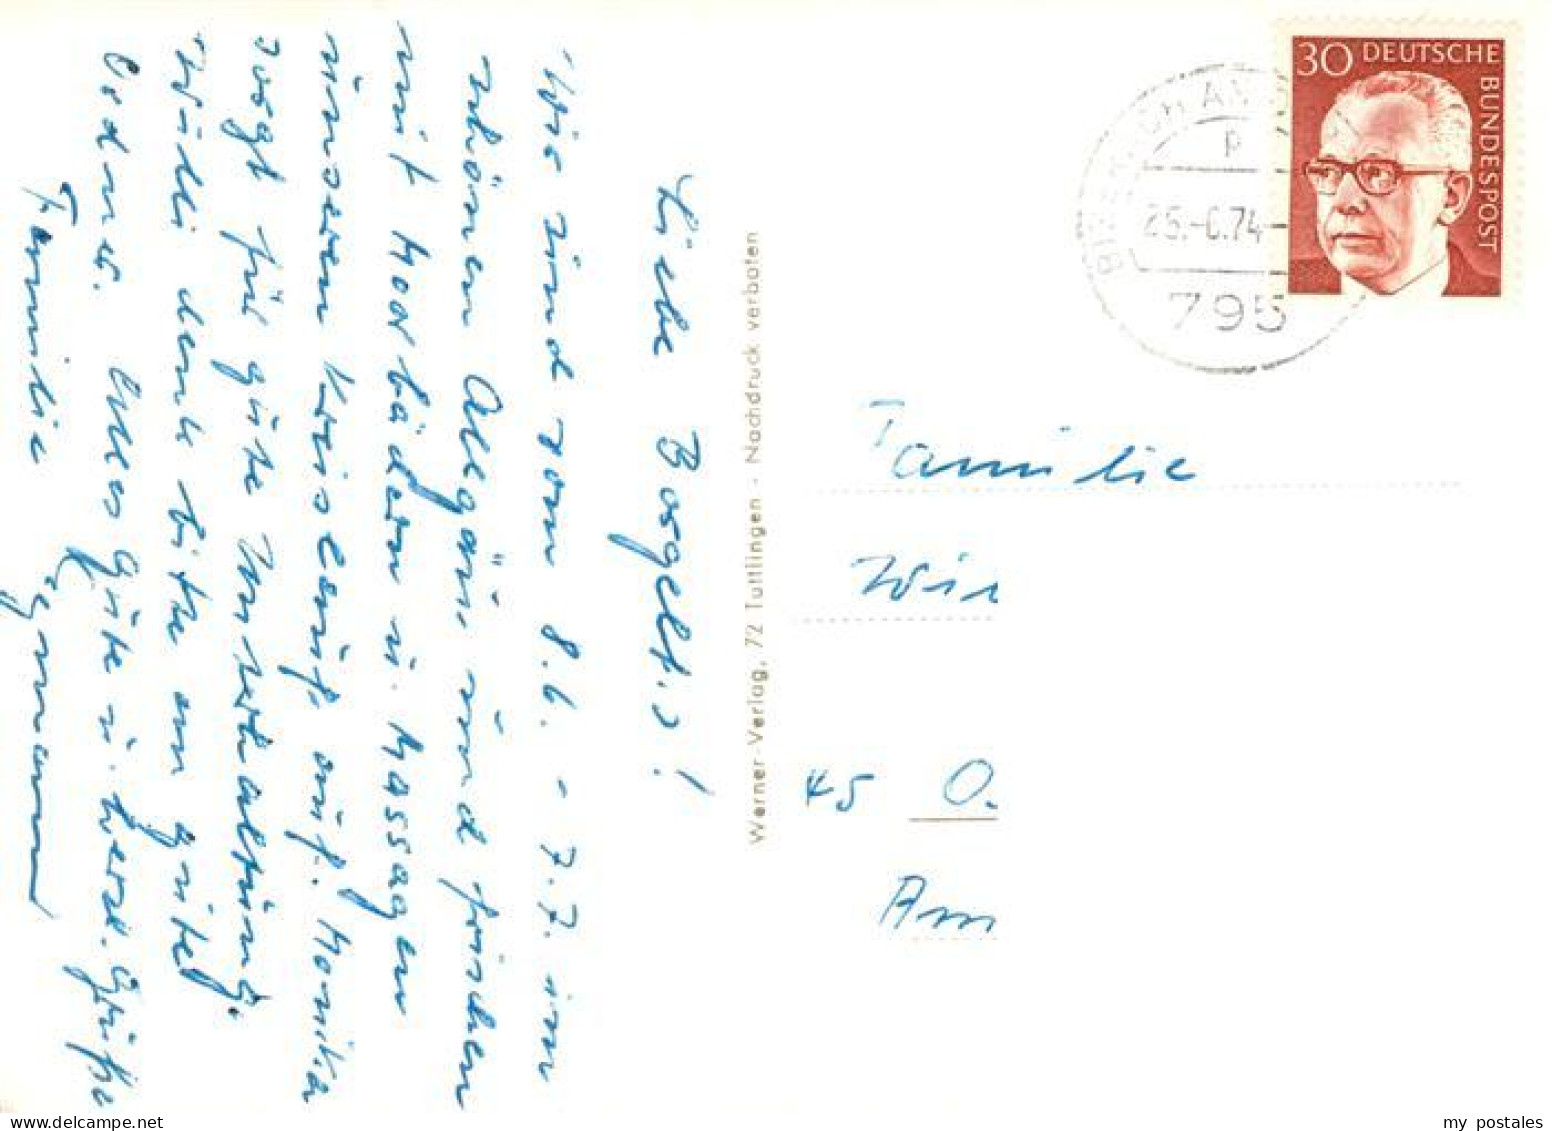 Liebe Borgelt's!
Wir sind vom 8.6. - 7.7. im
schönen Allgäu und frischen
mit Moorbädern u. Massagen
unseren Kreislauf auf. Monika
sorgt für gute Unterhaltung.
Willi denk bitte an guten
Alles Gute u. herzl. Grüße
Familie
Werner-Verlag, 72 Tuttlingen - Nachdruck verboten
30 DEUTSCHE BUNDESPOST
25.-6.74
795
Familie
Wie
45 O.
Am
my postales